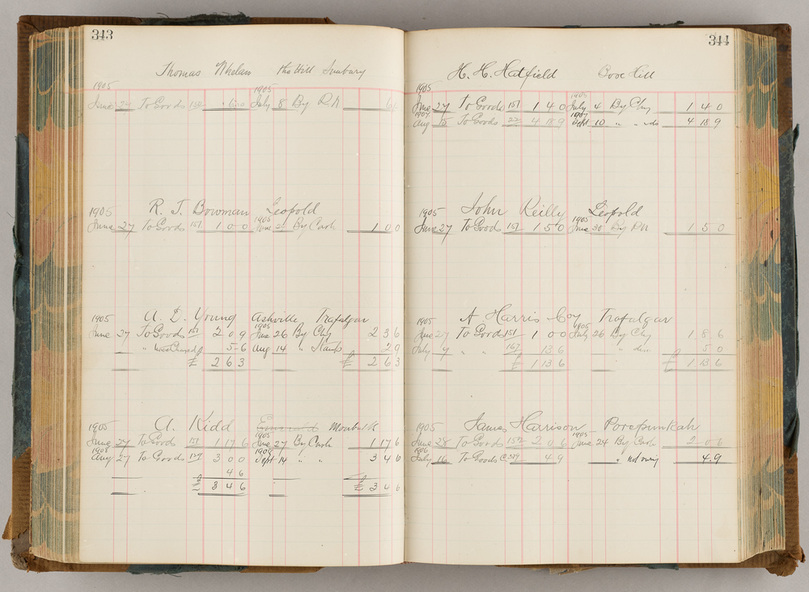 343
Thomas Whelan Sunbury
1905
June 27 To Goods July 8 By P.N.
R. J. Bowman Leopold
1905 1905
June 27 To Goods 1 0 0 June 27 By Cash 1 0 0
A. D. Young Ashville Trafalgar
1905 1905
June 27 To Goods 2 0 9 June 26 By Chq 2 3 6
5 6 Aug 14 " Stamps 2 9
£ 2 6 3 £ 2 6 3
A. Kidd Monbulk
1905 1905
June 27 To Goods 1 17 6 June 27 By Cash 1 17 6
Aug 27 To Goods 3 0 0 Sept 14 " " 3 4 6
4 6
£ 3 4 6 £ 3 4 6
344
H. H. Hatfield Box Hill
1905
June 27 To Goods 1 4 0 July 4 By Chq 1 4 0
1907 1907
Aug To Goods 4 18 9 Sept 10 " " 4 18 9
John Keilly Leopold
1905 1905
June 27 To Goods 1 5 0 June 30 By P.N. 1 5 0
A Harris Coy Trafalgar
1905 1905
June 27 To Goods 1 0 0 July 26 By Chq 1 8 6
July " " 13 6 " 5 0
£ 1 13 6 £ 1 13 6
James Harrison Porepunkah
1905 1905
June 28 To Goods 2 0 6 June 24 By Cash 2 0 6
1906
July 16 To Goods 4 9 " Not owing 4 9